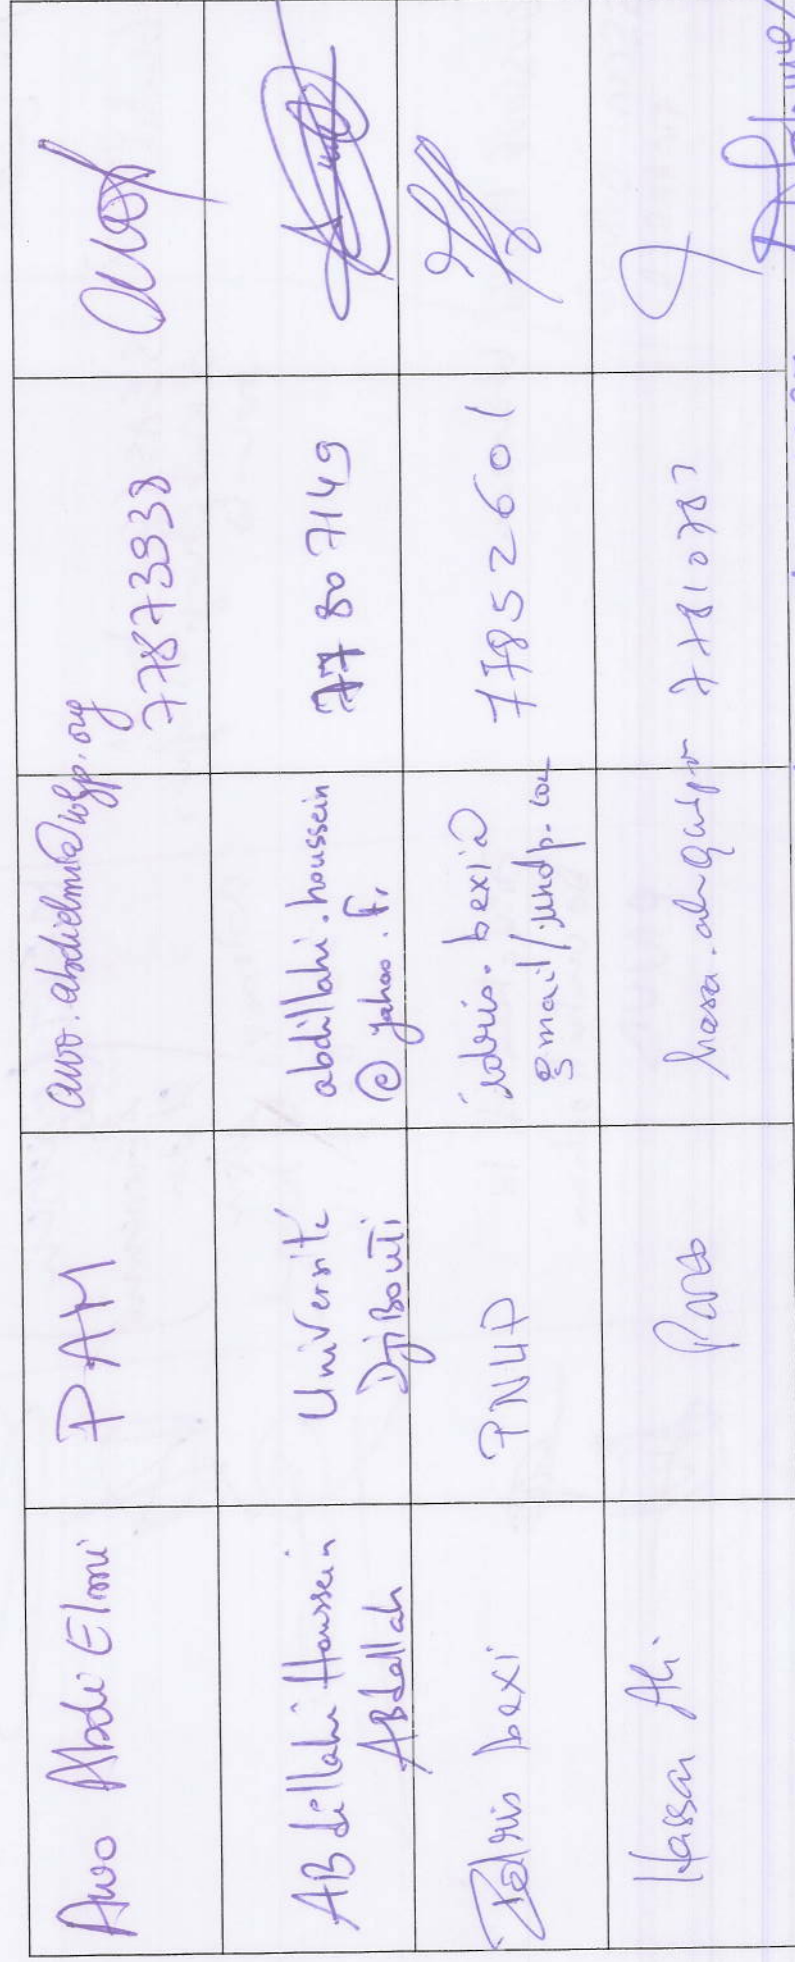 Awo Abdi Elmi
PAM
awo.abdielmi@wfp.org
77873938
ABdillahi Houssein
ABdallah
Université
DjiBouti
abdillahi.houssein
@ yahoo.fr
77 80 7149
Idris bexi
PNUD
idris.bexi@
gmail/undp.com
77852601
Hassan Ali